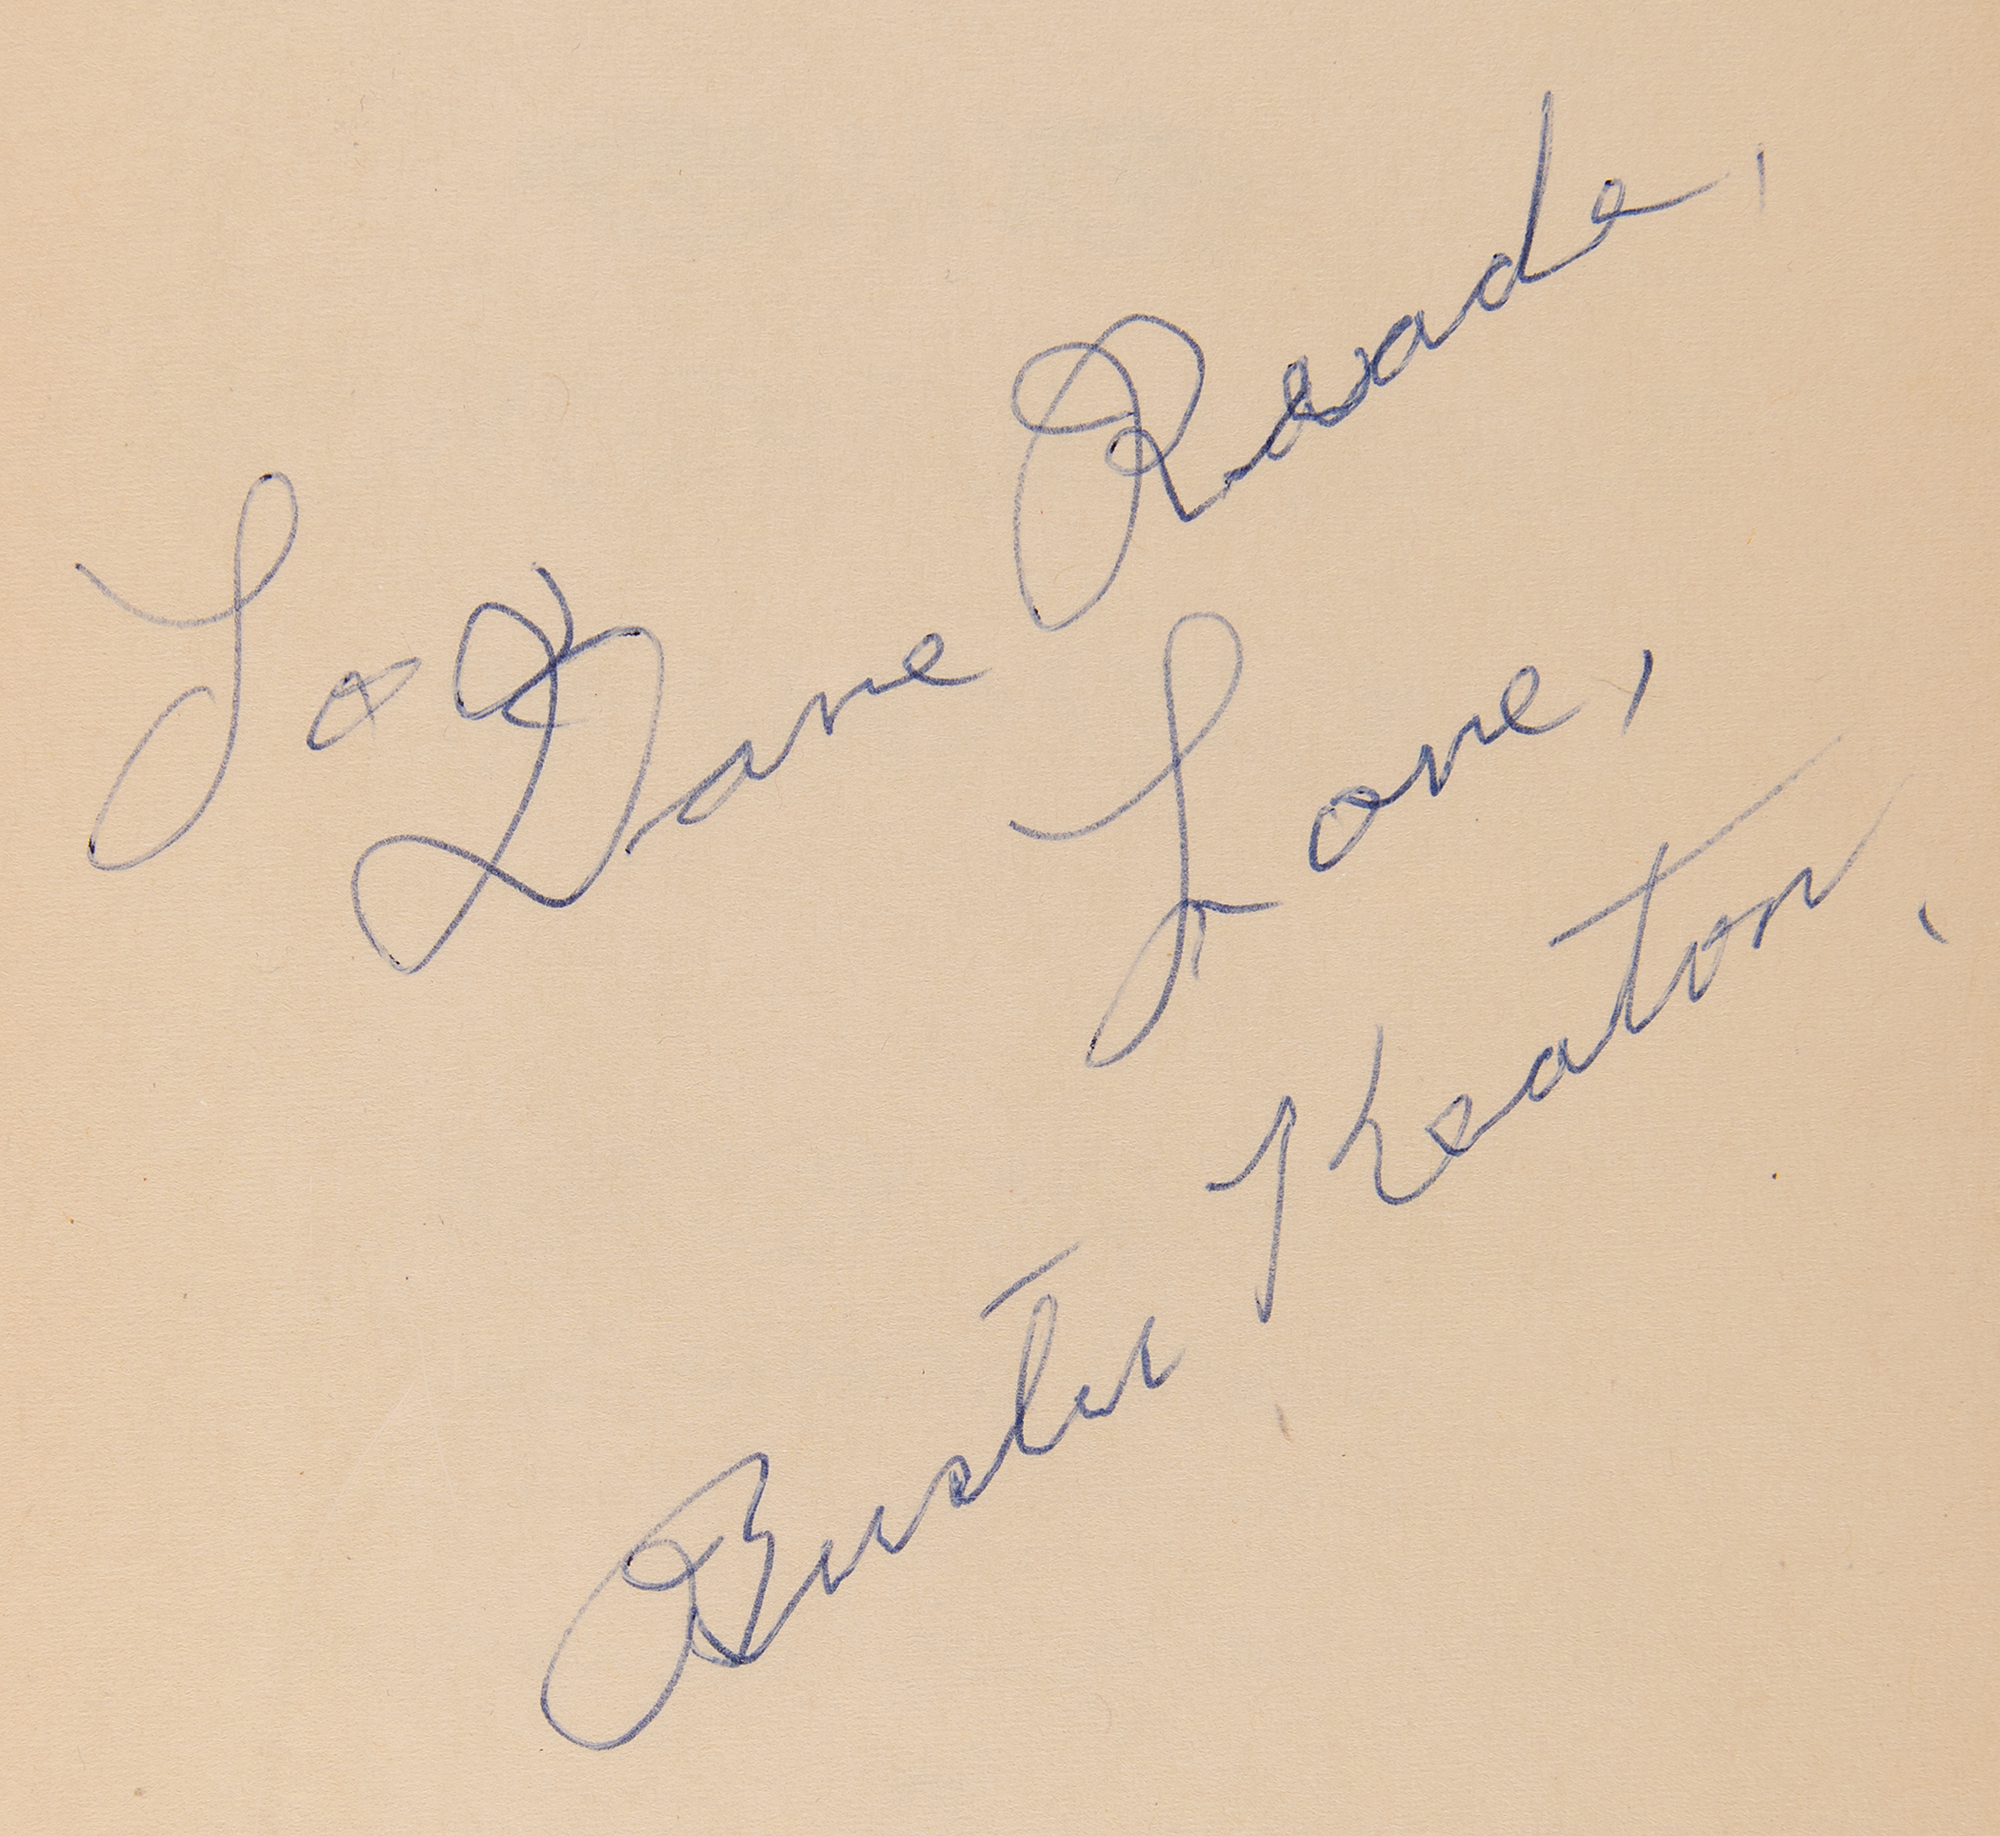 To Dave Reade,
Love,
Buster Keaton.